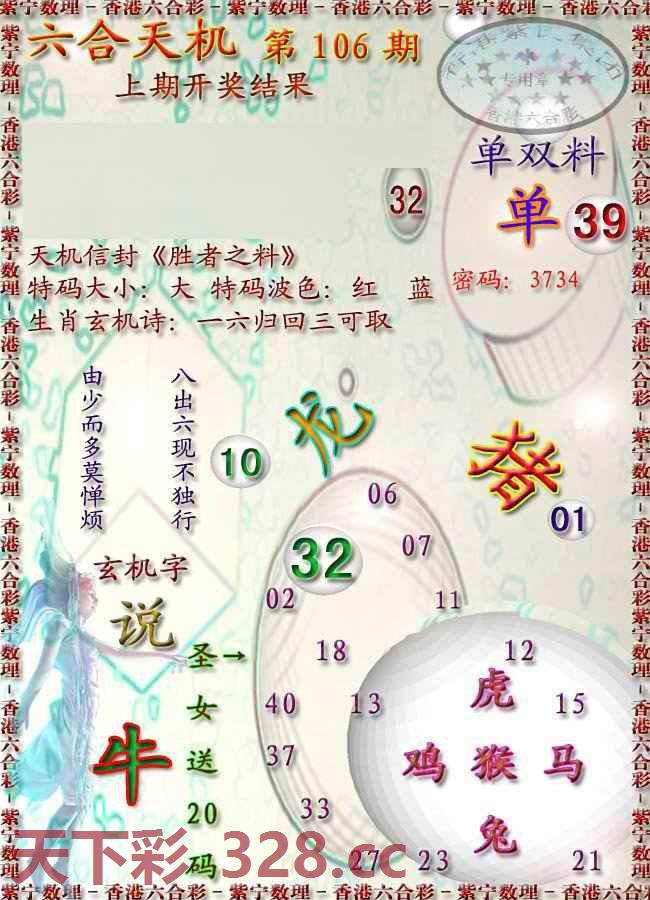 紫宁数理－香港六合彩－紫宁数理－香港六合彩－紫宁数理－香港六合彩
六合天机 第 106 期
上期开奖结果
专用章
香港六合彩
单双料
单 39
32
天机信封《胜者之料》
特码大小：大 特码波色：红 蓝
密码：3734
生肖玄机诗：一六归回三可取
八出六现不独行
由少而多莫惮烦
10
龙
猪
01
06
32
07
玄机字
说
02
11
圣女送20码
→
18
12
虎
40
13
15
牛
37
鸡 猴 马
33
兔
27
23
21
天下彩.328.cc
紫宁数理－香港六合彩－紫宁数理－香港六合彩－紫宁数理－香港六合彩